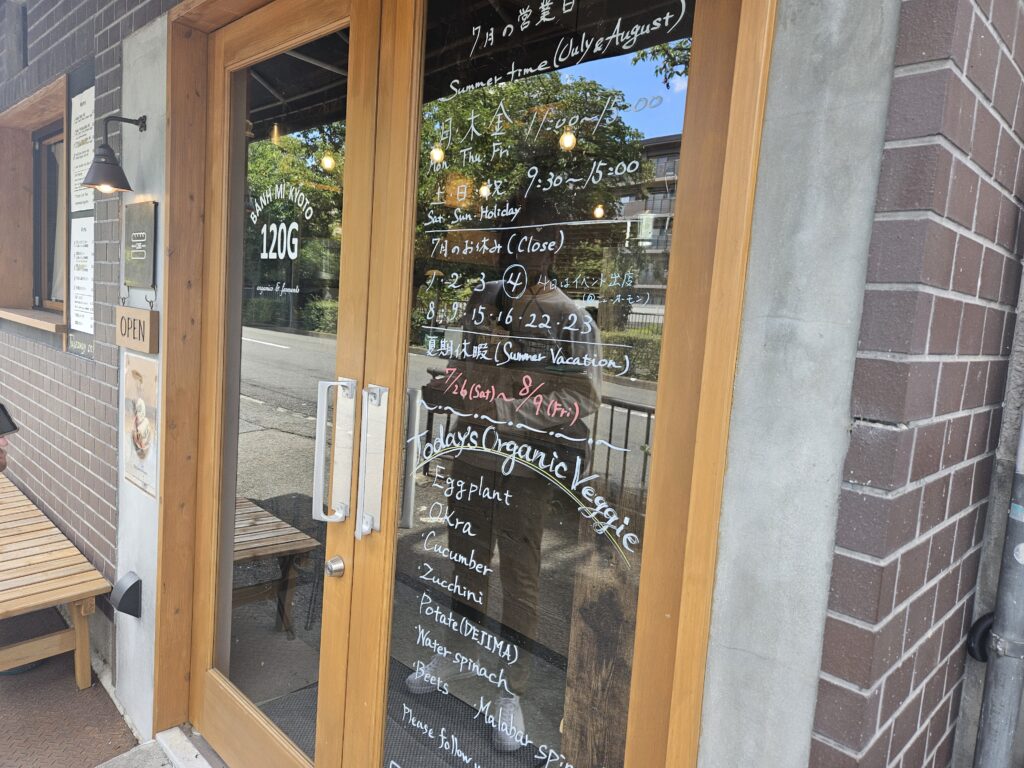 BÁNH MÌ KYOTO
120G
organics & ferments
OPEN
7月の営業日
Summer time (July & August)
月 木 金 11:00~15:00
Mon Thu Fri
土 日 祝 9:30~15:00
Sat Sun Holiday
7月のお休み (Close)
2・3 ④ 4日はイベント出店
8・9・15・16・22・23
夏期休暇 (Summer Vacation)
7/26 (Sat) ~ 8/9 (Fri)
Today's Organic Veggie
・Eggplant
・Okra
・Cucumber
・Zucchini
・Potate (DEJIMA)
・Water spinach
・Beets ・Malabar spin
Please follow